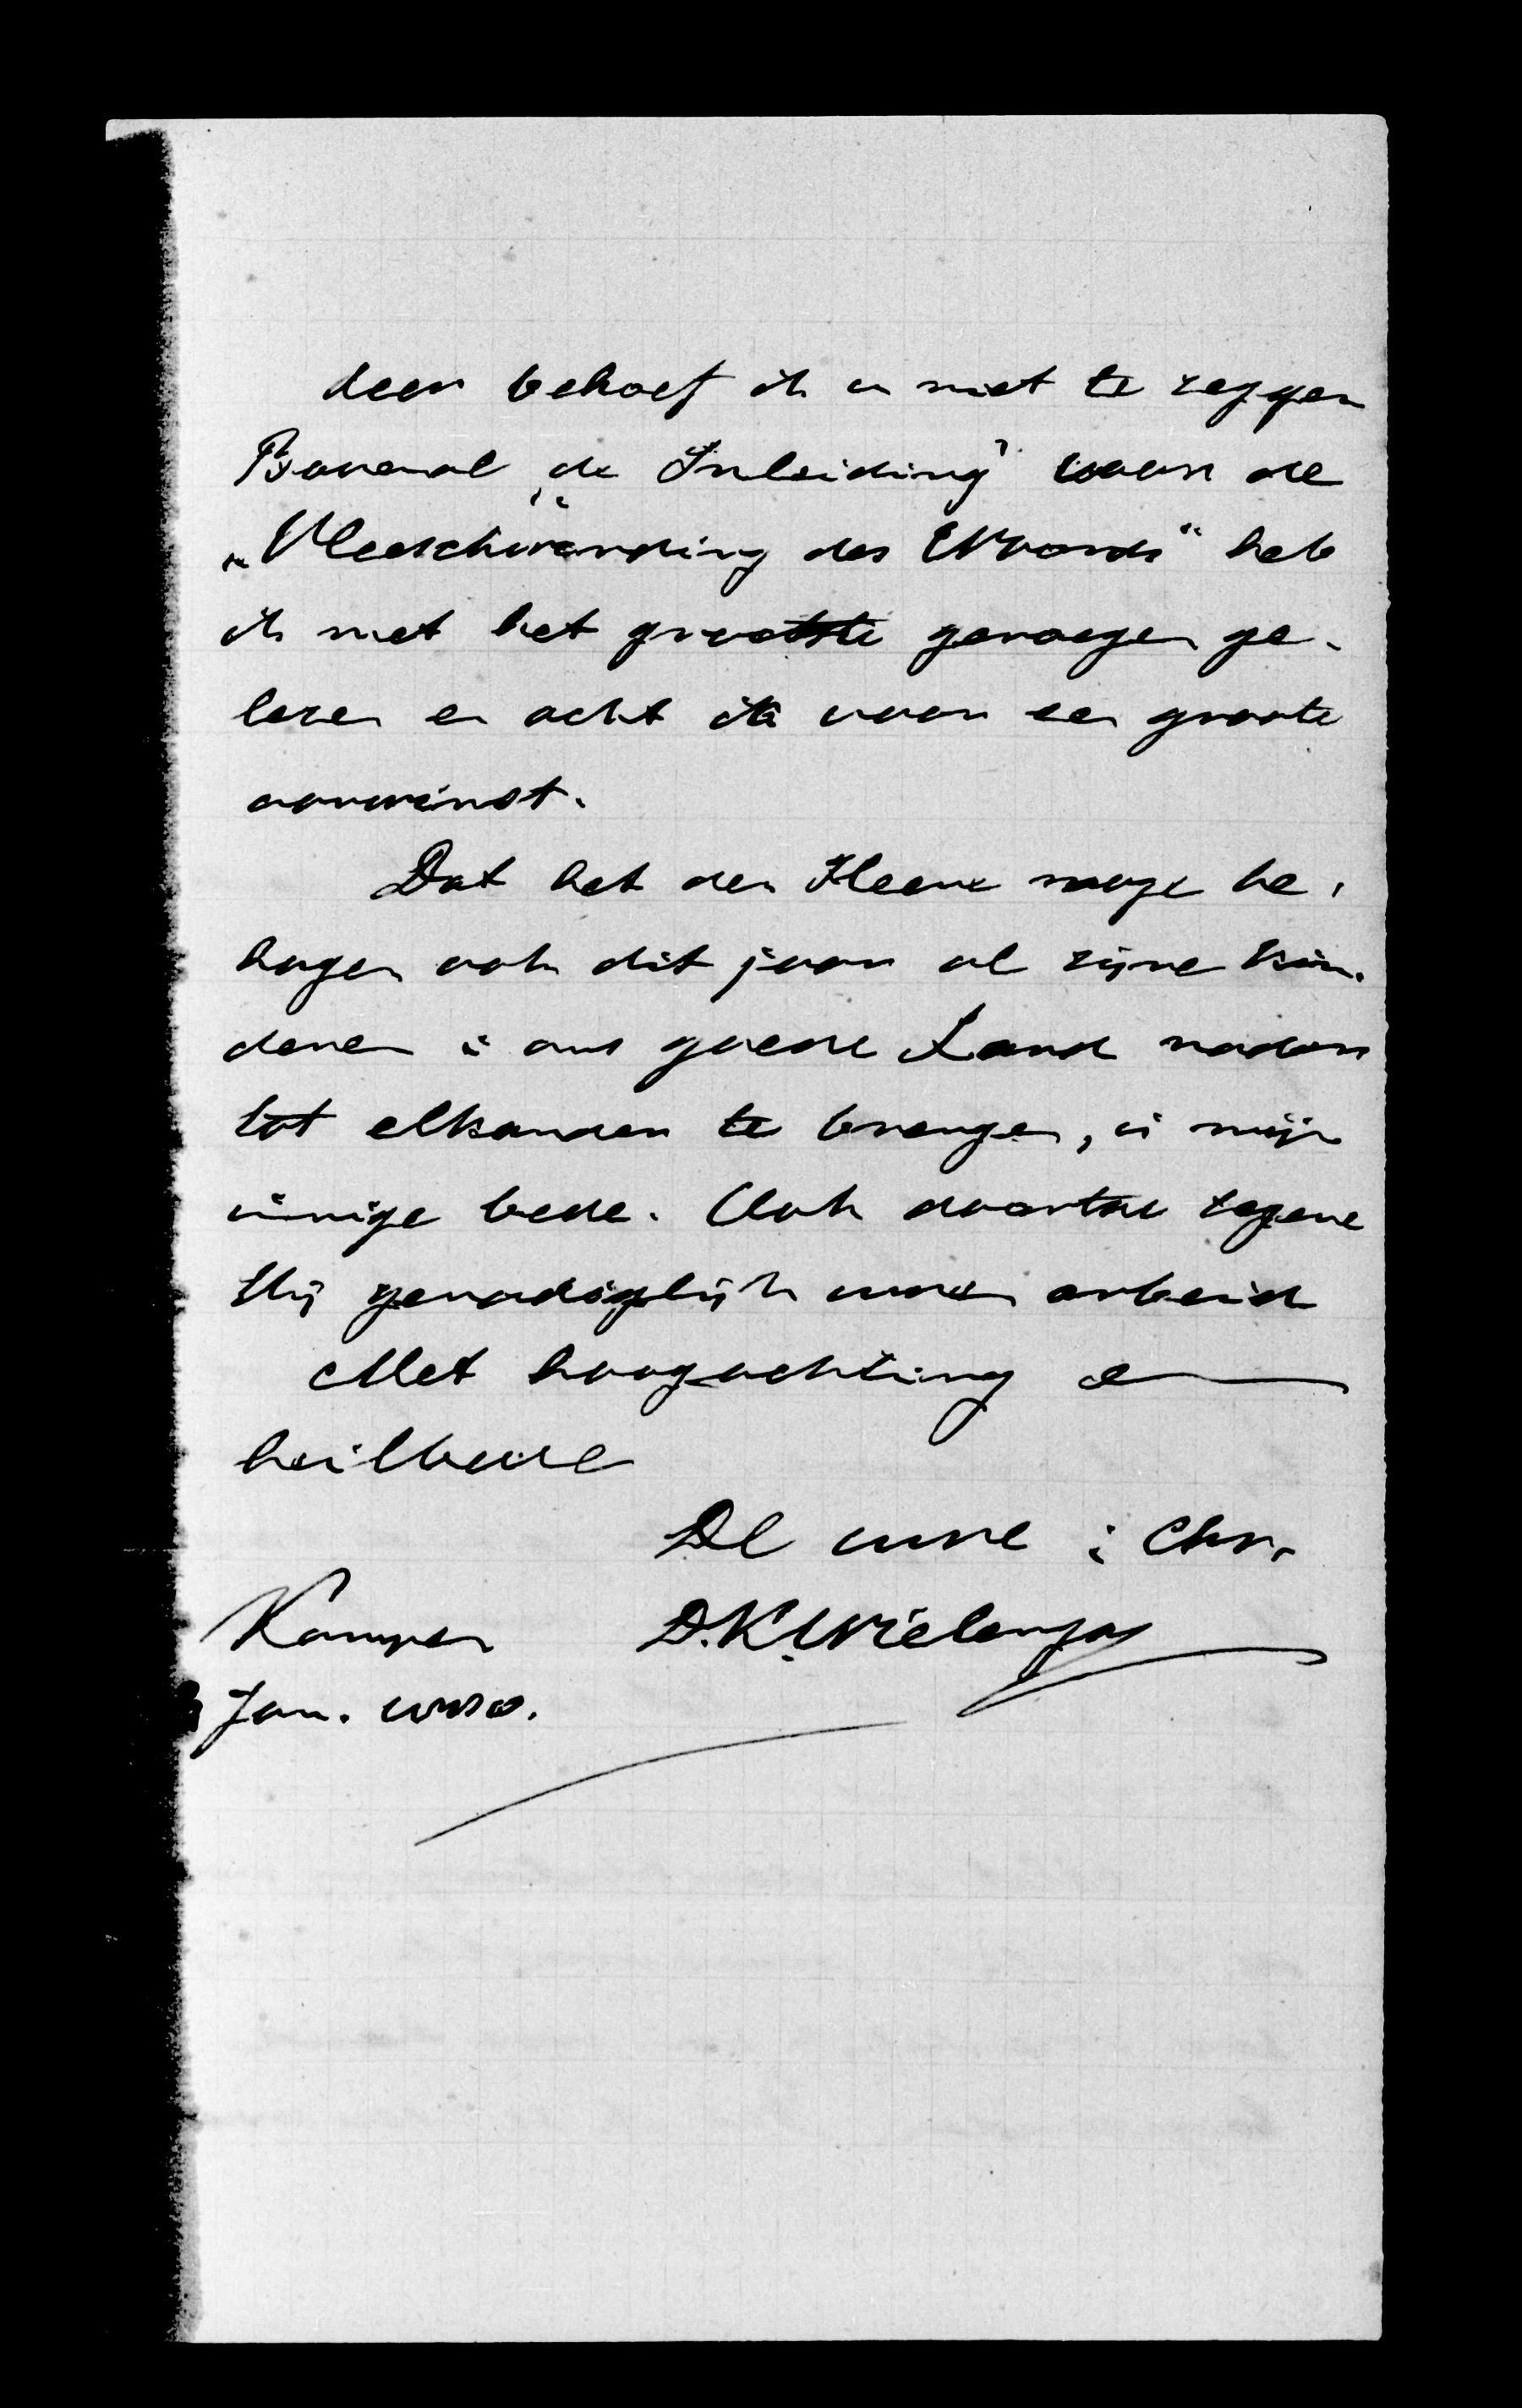 deer behoef ik u niet te zeggen
Bovenal „de Inleiding" voor de
„Vleeschwording des Woords" heb
ik met het grootste genoegen ge-
lezen en acht ik voor een groote
aanwinst.
Dat het den Heere moge be-
hagen ook dit jaar al zijne kin-
deren in ons goede Land nader
tot elkander te brengen, is mijn
innige bede. Ook daartoe zegene
Hij genadiglijk uwen arbeid
Met hoogachting en
heilbede
De uwe in Chr.
Kampen D.K. Wielenga
Jan.